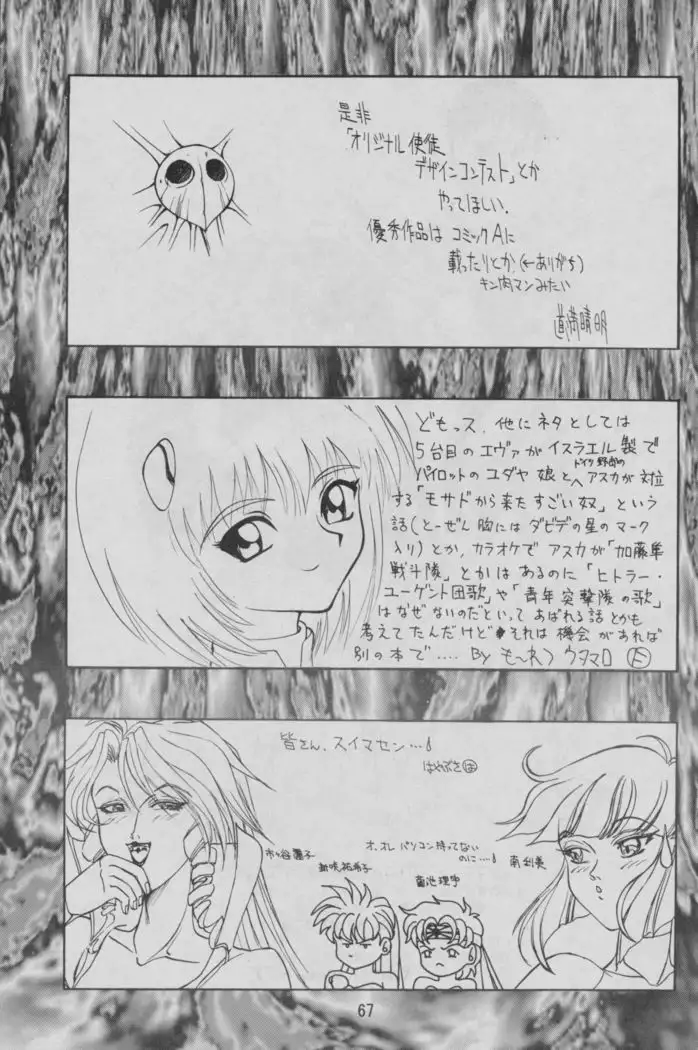 是非
「オリジナル使徒
デザインコンテスト」とか
やってほしい.
優秀作品は コミックAに
載ったりとか(←ありがち)
キン肉マンみたい
道満晴明
どもっス, 他にネタとしては
5台目のエヴァがイスラエル製で
ドイツ野郎の
パイロットのユダヤ娘とアスカが対立
する「モサドから来たすごい奴」という
話(とーぜん胸にはダビデの星のマーク
入り)とか,カラオケでアスカが「加藤隼
戦斗隊」とかはあるのに「ヒトラー・
ユーゲント団歌」や「青年突撃隊の歌」
はなぜないのだといってあばれる話とかも
考えてたんだけど それは機会があれば
別の本で‥‥ By も〜れつウタマロ
皆さん、スイマセン…
はやぶさ
市ヶ谷麗子
新咲祐希子
オ、オレ パソコン持ってない
のに…
菊池理宇
南利美
67